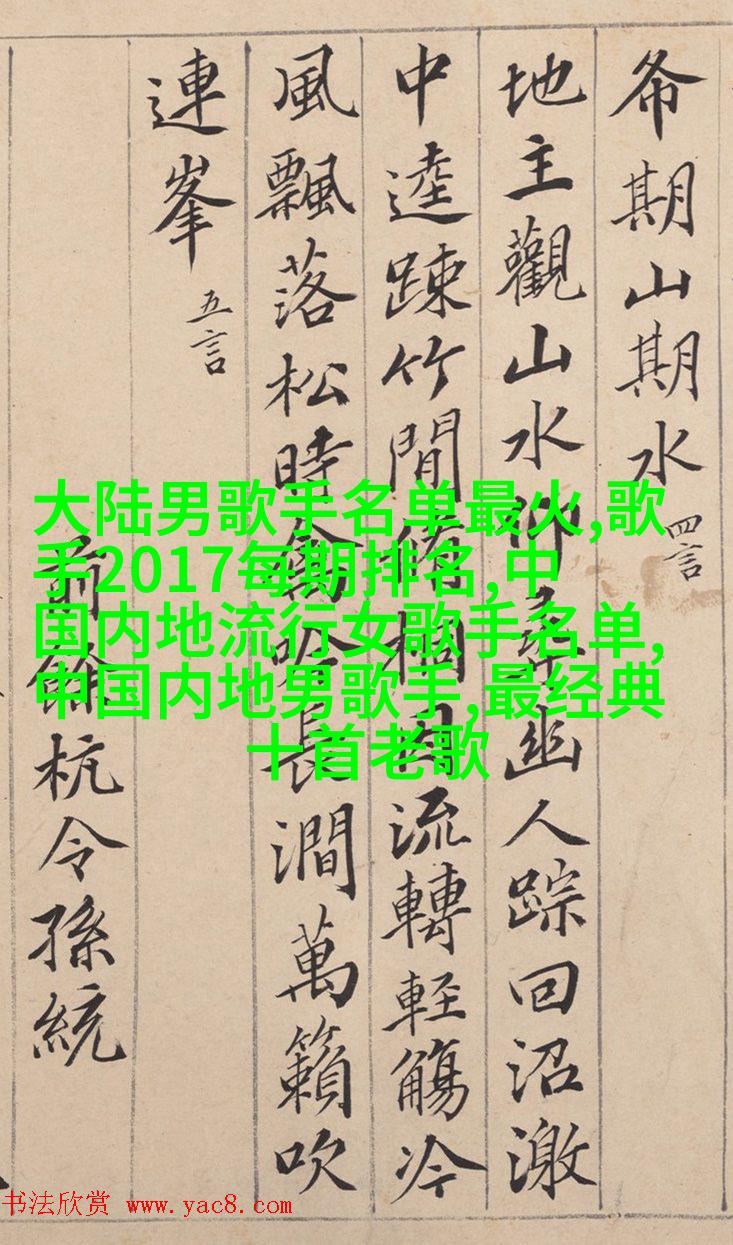 希期山期水 四言
地主觀山水仰尋幽人踪回沼激
中逵踈竹間脩桐因流轉輕觴冷
風飄落松時禽吟長澗萬籟吹
連峯 五言
前餘杭令孫統
大陆男歌手名单最火,歌
手2017每期排名,中
国内地流行女歌手名单,
中国内地男歌手,最经典
十首老歌
书法欣赏 www.yac8.com